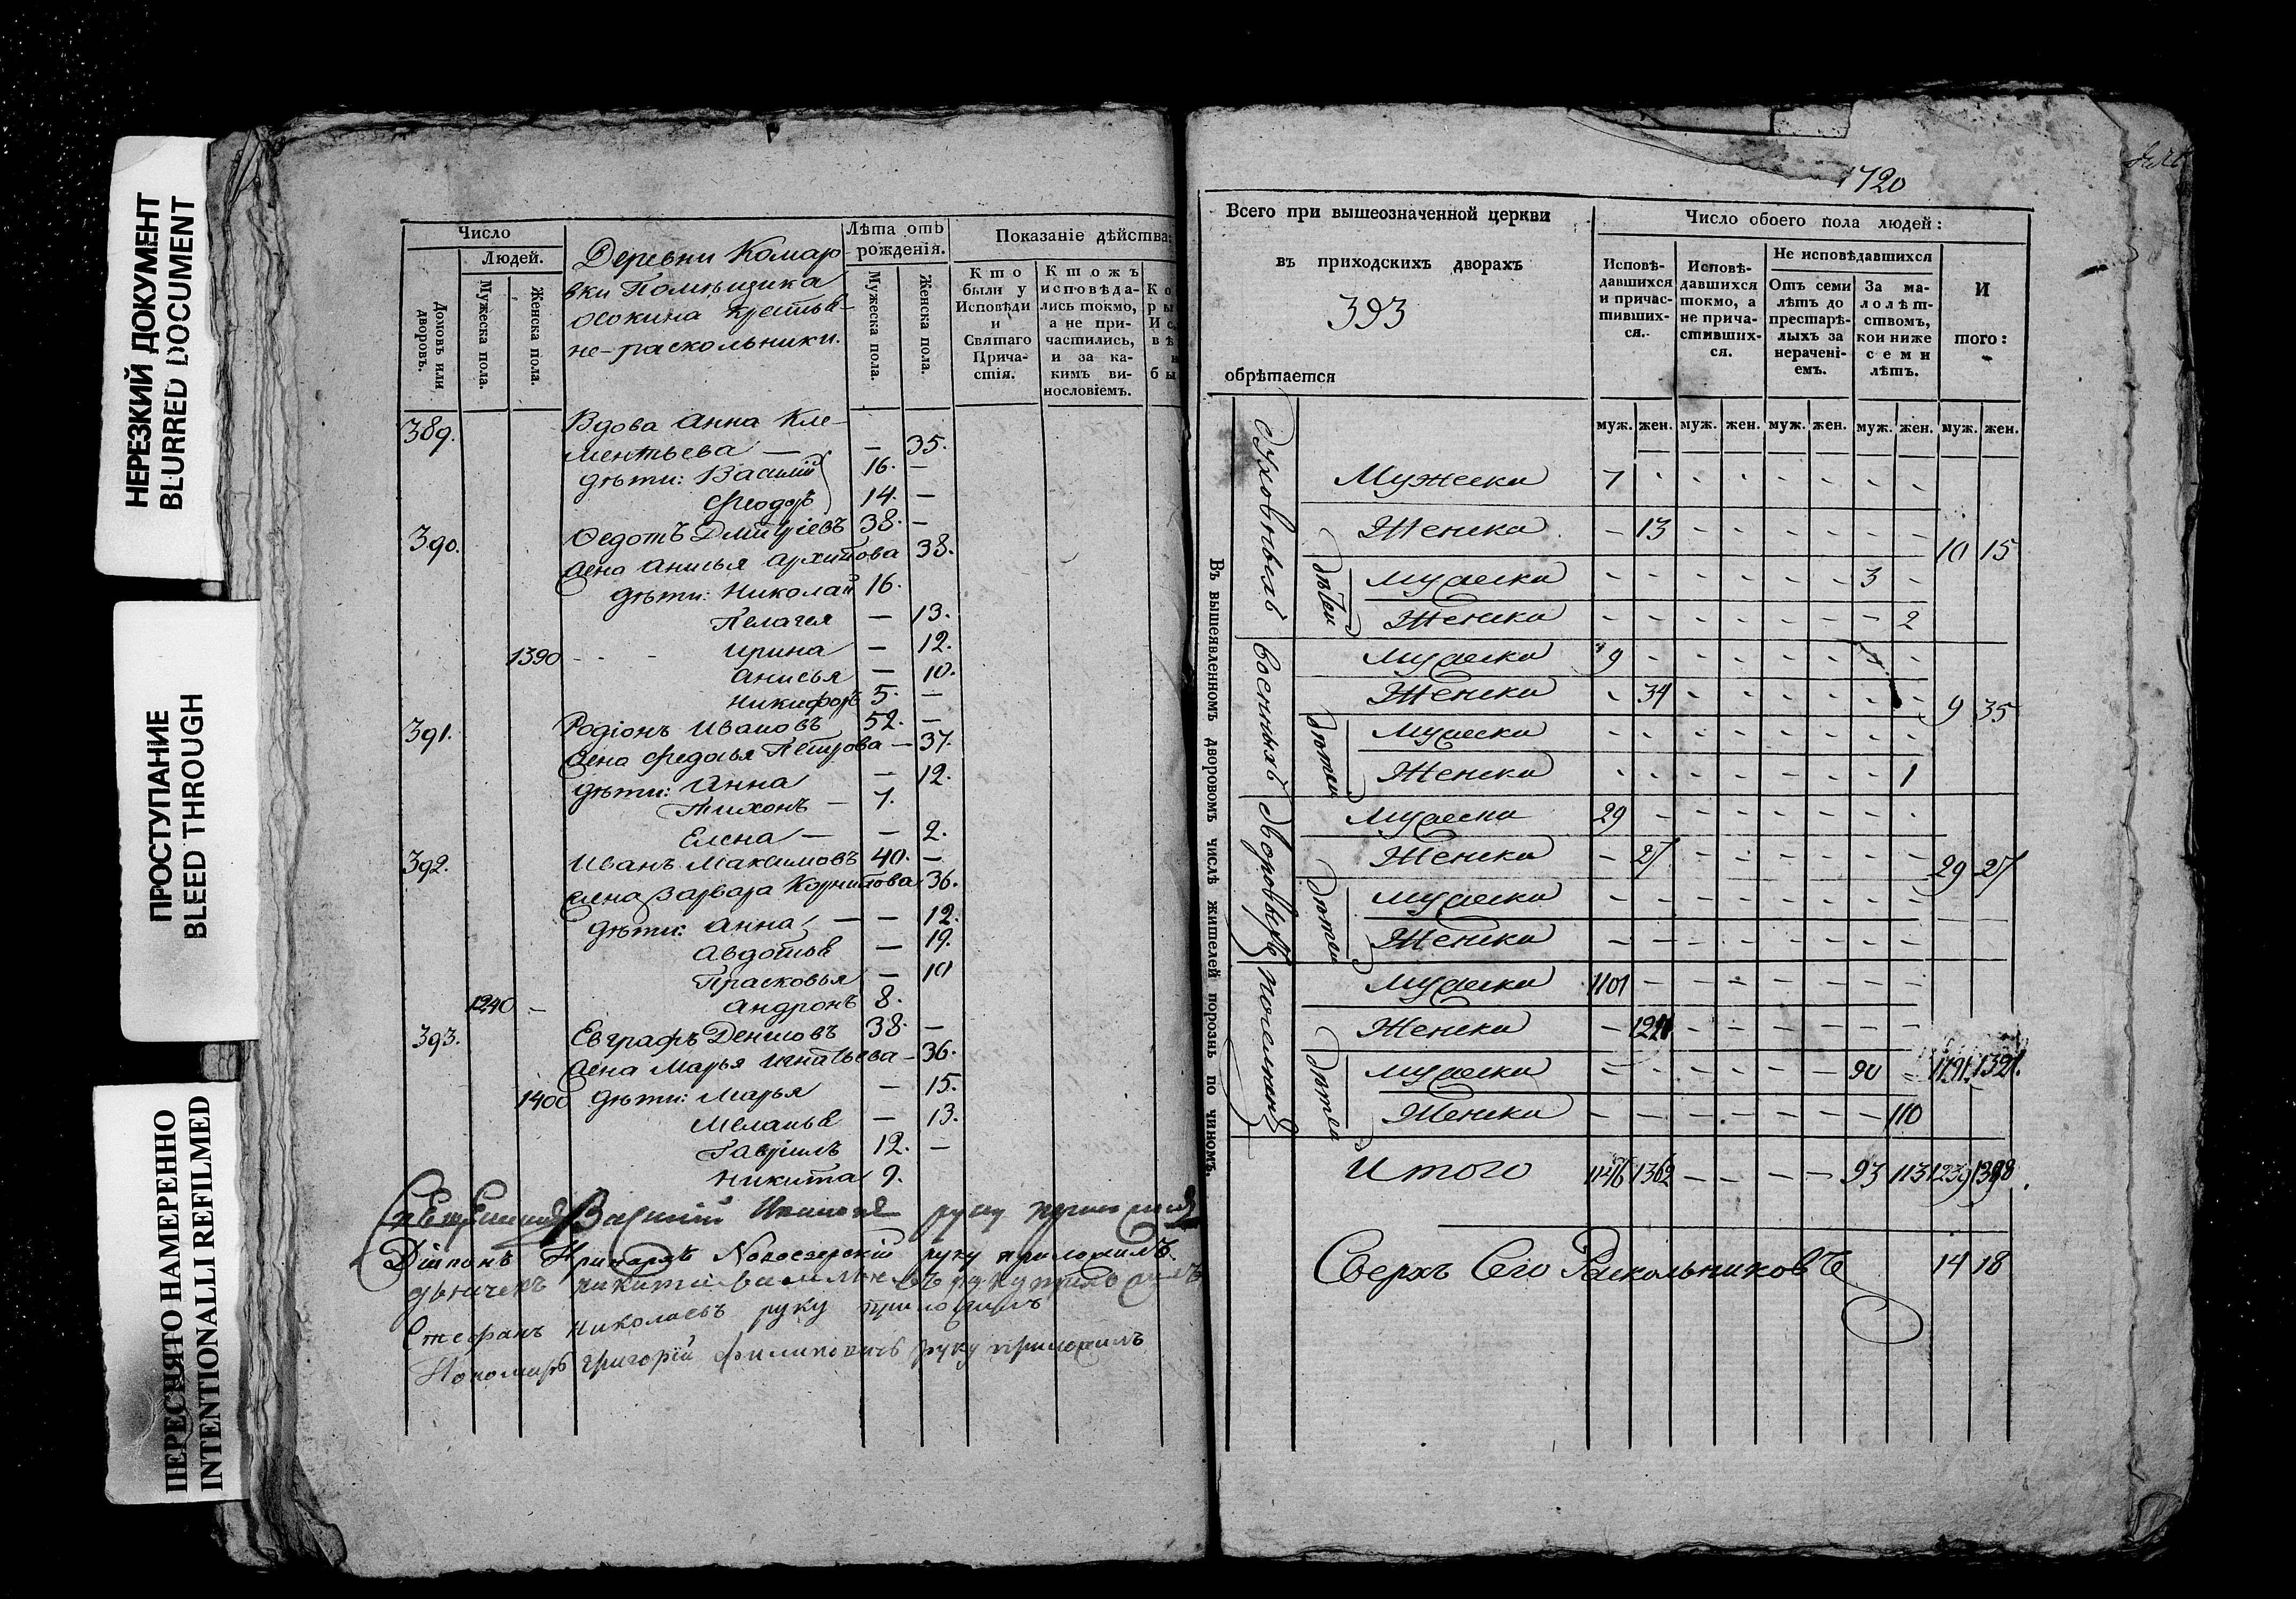 НЕРЕЗКИЙ ДОКУМЕНТ
BLURRED DOCUMENT
ПРОСТУПАНИЕ
BLEED THROUGH
ПЕРЕСНЯТО НАМЕРЕННО
INTENTIONALLI REFILMED
Число
Людей.
Домовъ или дворовъ.
Мужеска пола.
Женска пола.
Деревни Комар-
вки Помѣщика
Осокина крестья-
не-раскольники.
Лѣта отъ рожденія.
Мужеска пола.
Женска пола.
Показаніе дѣйства:
Кто были у Исповѣди и Святаго Прича-стія.
Ктожъ исповѣда-лись токмо, а не при-частились, и за ка-кимъ ви-нословіемъ.
389. Вдова Анна Кле-
ментьева — — 35.
дѣти: Василій 16. —
Феодоръ 14. —
390. Ѳедотъ Дмитріевъ 38. —
жена Анисья Архипова 38.
дѣти: Николай 16.
Пелагея — 13.
1390 - - - Ирина — 12.
Анисья — 10.
Никифоръ 5. —
391. Родіонъ Ивановъ 52. —
жена Федосья Петрова — 37.
дѣти: Анна — 12.
Тихонъ — 7.
Елена — — 2.
392. Иванъ Максимовъ 40. —
жена Варвара Корнилова 36.
дѣти: Анна — — 12.
Авдотья — 19.
Прасковья — 10
1240 — Андронъ 8.
393. Евграфъ Денисовъ 38. —
жена Марья Игнатьева — 36.
1400 дѣти: Марья — 15.
Меланья — 13.
Гаврилъ 12. —
Никита 9.
Священникъ Василій Ивановъ руку приложилъ
Діаконъ Новоезерскій руку приложилъ
дьячекъ Никита Васильевъ руку приложилъ
Стефанъ Николаевъ руку приложилъ
Пономарь Григорій Филиповъ руку приложилъ
1720
Всего при вышеозначенной церкви
въ приходскихъ дворахъ
393
обрѣтается
Число обоего пола людей:
Исповѣ-давшихся и причас-тивших-ся.
Исповѣ-давшихся токмо, а не прича-стивших-ся.
Не исповѣдавшихся
Отъ семи лѣтъ до престарѣ-лыхъ за нерачені-емъ.
За ма-лолѣт-ствомъ, кои ниже семи лѣтъ.
И того:
муж. жен. муж. жен. муж. жен. муж. жен. муж. жен.
Въ вышеявленномъ дворовомъ числѣ жителей порознь по чиномъ.
Духовныхъ
Мужеска 7 - - - - - - -
Женска — 13 - - - - - - 10 15
Дѣтей
Мужеска - - - - - - 3 -
Женска - - - - - - - 2
Военныхъ
Мужеска 9 - - - - - - -
Женска - 34 - - - - - - 9 35
Дѣтей
Мужеска - - - - - - - -
Женска - - - - - - - 1
Дворовыхъ
Мужеска 29 - - - - - - -
Женска - 27 - - - - - - 29 27
Дѣтей
Мужеска - - - - - - - -
Женска - - - - - - - -
Поселянъ
Мужеска 1101 - - - - - - -
Женска - - - - - - -
Дѣтей
Мужеска - - - - - - 90 - 1191. 1321.
Женска - - - - - - - 110
Итого 1146 1362 - - - - 93 113 1239 1398.
Сверхъ Сего Раскольниковъ 14 18